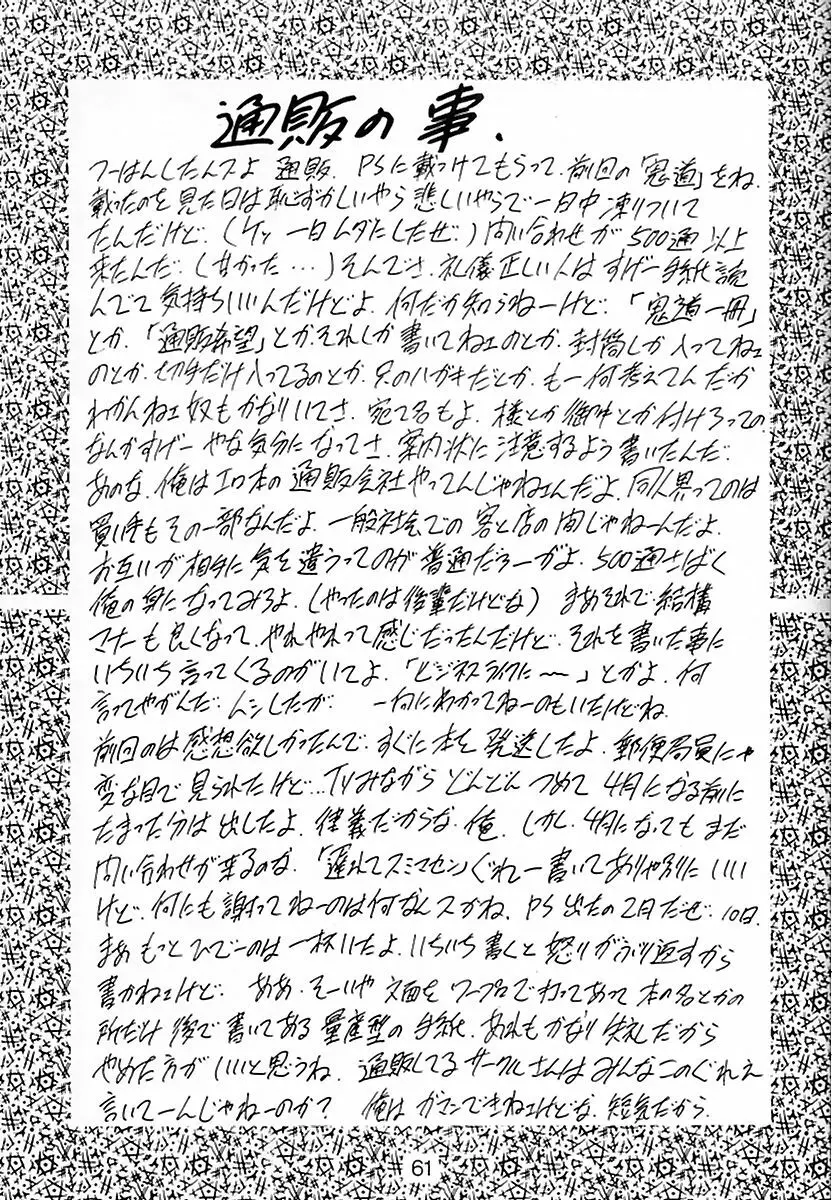 通販の事.
つーはんしたんスよ 通販. PSに載っけてもらって. 前回の「鬼道」をね.
載ったのを見た日は恥ずかしいやら悲しいやらで一日中凍りついて
たんだけど.(ケッ 一日ムダにしたぜ.)問い合わせが500通以上
来たんだ.(甘かった…)そんでさ.礼儀正しい人はすげー手紙読
んでて気持ちいいんだけどよ.何だか知らねーけど.「鬼道一冊」
とか.「通販希望」とかそれしか書いてねェのとか.封筒しか入ってねェ
のとか.切手だけ入ってるのとか.只のハガキだとか.もー何考えてんだか
わかんねェ奴もかなりいてさ.宛て名もよ.様とか御中とか付けろっての.
なんかすげー やな気分になってさ.案内状に注意するよう書いたんだ.
あのな.俺はエロ本の通販会社やってんじゃねェんだよ.同人界ってのは
買い手もその一部なんだよ.一般社会での客と店の間じゃねーんだよ.
お互いが相手に気を遣うってのが普通だろーがよ.500通さばく
俺の身になってみろよ.(やったのは後輩だけどな) まあそれで結構
マナーも良くなって.やれやれって感じだったんだけど.それを書いた事に
いちいち言ってくるのがいてよ.「ビジネスライクに〜」とかよ.何
言ってやがんだ.ムシしたが. 一向にわかってねーのもいたけどね.
前回のは感想欲しかったんで.すぐに本を発送したよ.郵便局員にゃ
変な目で見られたけど…TVみながら どんどん つめて 4月になる前に
たまった分は出したよ.律義だからな.俺.しかし.4月になってもまだ
問い合わせが来るのな.「遅れてスミマセン」ぐれー書いてありゃ別にいい
けど.何にも謝ってねーのは何なんスかね.PS出たの2月だぜ.10日.
まあ もっとひでーのは一杯いたよ.いちいち書くと怒りがぶり返すから
書かねェけど. ああ.そーいや 文面をワープロで打ってあって 本の名とかの
所だけ 後で書いてある量産型の手紙.あれもかなり失礼だから
やめた方がいいと思うね. 通販してるサークルさんはみんなこのぐれェ
言いてーんじゃねーのか? 俺はガマンできねェけどな.短気だから.
61